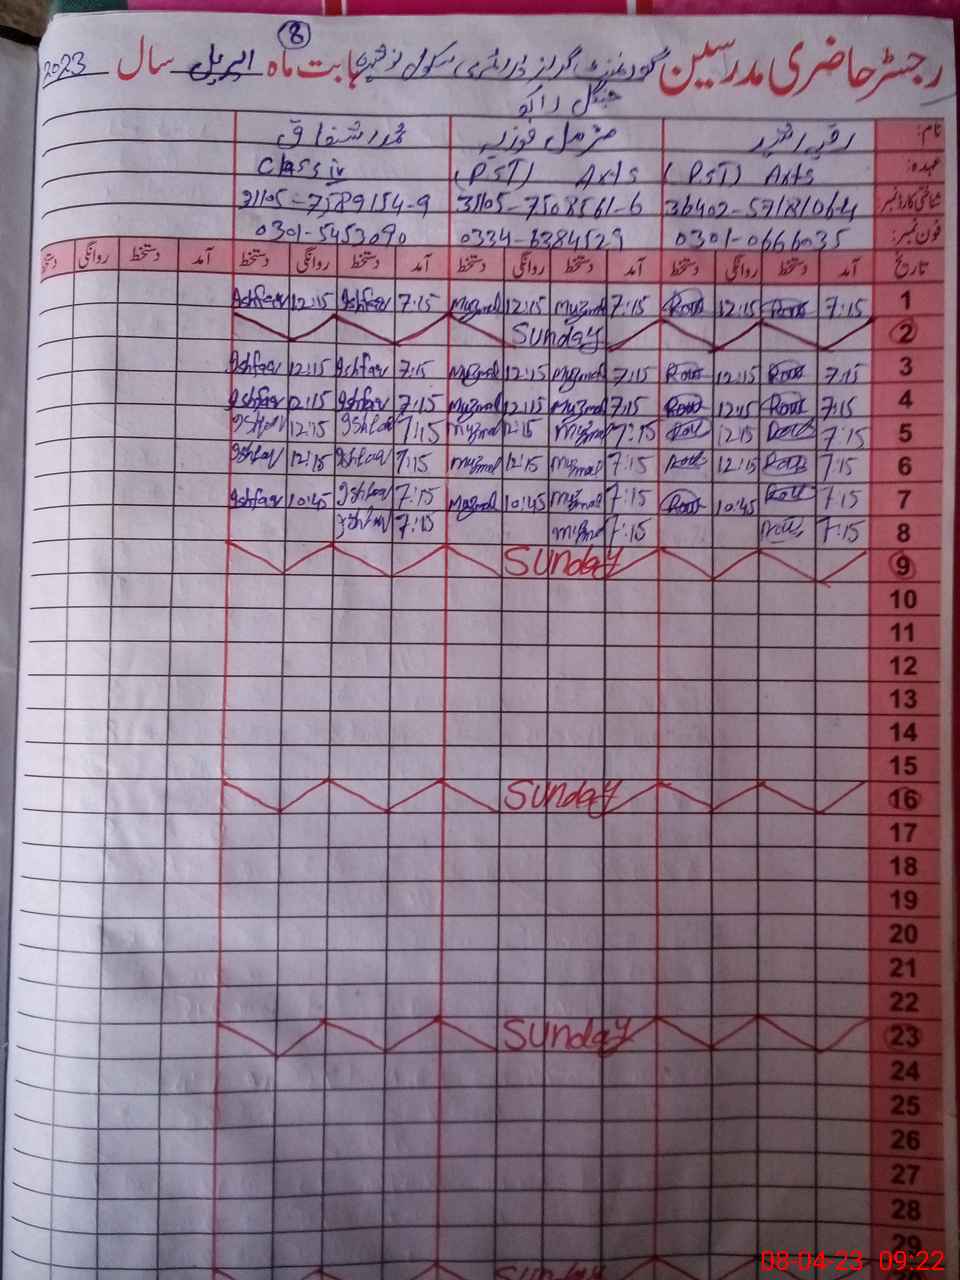 رجسٹر حاضری مدرسین گورنمنٹ گرلز پرائمری سکول بابت ماہ اپریل سال 2023
8
نام:
عہدہ: (PST) Arts (PST) Arts Class iv
شناختی کارڈ نمبر 31105-7508561-6 31105-7589154-9
فون نمبر: 0301-0666035 0334-6384529 0301-5453090
تاریخ آمد دستخط روانگی دستخط آمد دستخط روانگی دستخط آمد دستخط روانگی دستخط آمد دستخط روانگی دستخط
1 7:15 Rout 12:15 Rout 7:15 Muzmal 12:15 Muzmal 7:15 Ishfaq 12:15 Ishfaq
2 Sunday
3 7:15 Rout 12:15 Rout 7:15 Muzmal 12:15 Muzmal 7:15 Ishfaq 12:15 Ishfaq
4 7:15 Rout 12:15 Rout 7:15 Muzmal 12:15 Muzmal 7:15 Ishfaq 12:15 Ishfaq
5 7:15 Rout 12:15 Rout 7:15 Muzmal 12:15 Muzmal 7:15 Ishfaq 12:15 Ishfaq
6 7:15 Rout 12:15 Rout 7:15 Muzmal 12:15 Muzmal 7:15 Ishfaq 12:15 Ishfaq
7 7:15 Rout 10:45 Rout 7:15 Muzmal 10:45 Muzmal 7:15 Ishfaq 10:45 Ishfaq
8 7:15 Rout 7:15 Muzmal 7:15 Ishfaq
9 Sunday
10
11
12
13
14
15
16 Sunday
17
18
19
20
21
22
23 Sunday
24
25
26
27
28
29
Sunday
08-04-23 09:22